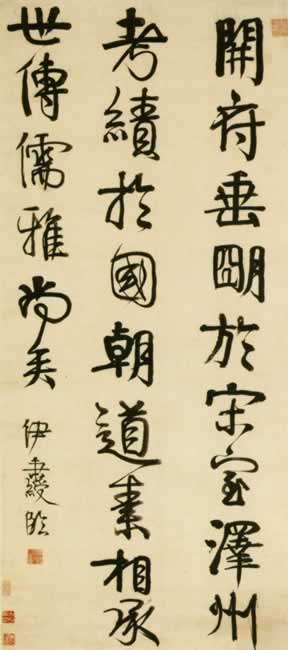 開府垂朙於宋室澤州
考績於國朝道素相承
世傳儒雅尚矣
伊秉綬臨